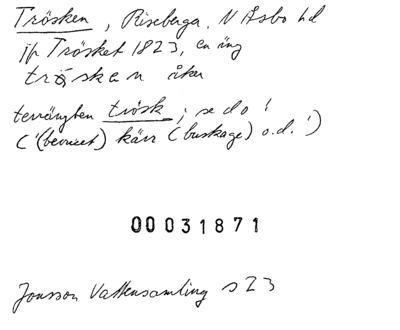 Trösken, Riseberga, N Åsbo hd
jfr Trösket 1823, en äng
tröskan åker
terrängben trösk; se do!
('(bevuxet) kärr (buskage) o.d.')
00031871
Jonsson Vattensamling s 23